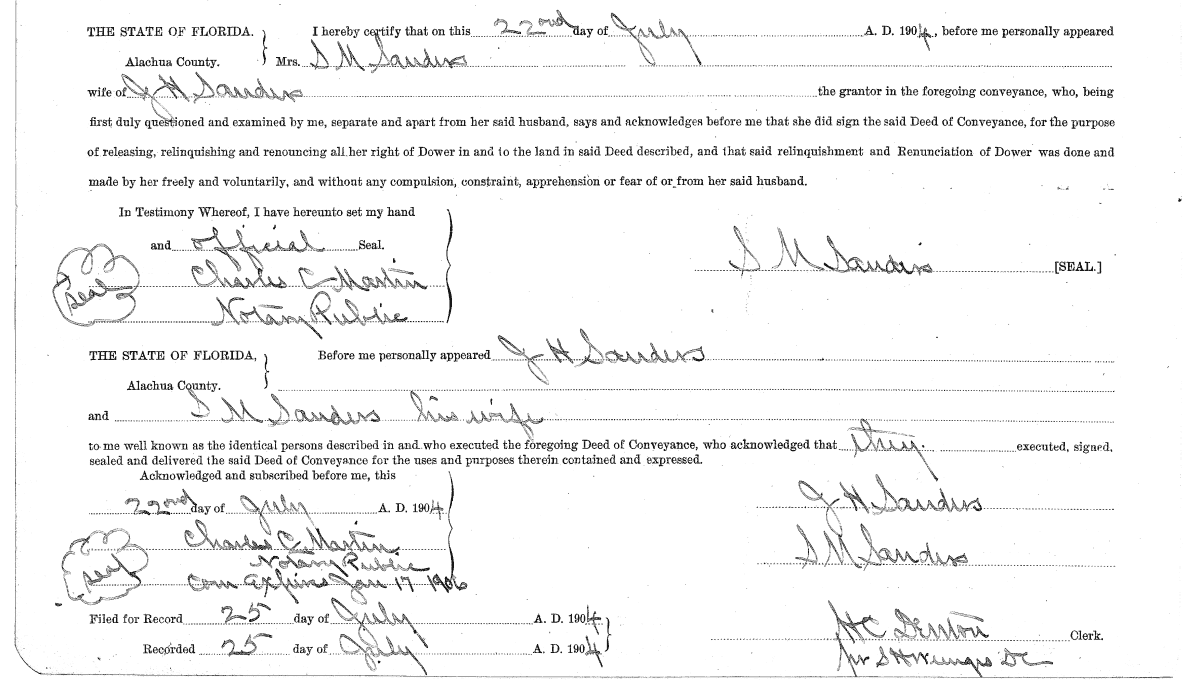 THE STATE OF FLORIDA. I hereby certify that on this 22nd day of July A. D. 1904, before me personally appeared
Alachua County. Mrs. S M Sanders
wife of J H Sanders the grantor in the foregoing conveyance, who, being
first duly questioned and examined by me, separate and apart from her said husband, says and acknowledges before me that she did sign the said Deed of Conveyance, for the purpose
of releasing, relinquishing and renouncing all her right of Dower in and to the land in said Deed described, and that said relinquishment and Renunciation of Dower was done and
made by her freely and voluntarily, and without any compulsion, constraint, apprehension or fear of or from her said husband.
In Testimony Whereof, I have hereunto set my hand
and official Seal.
S M Sanders [SEAL.]
Seal Charles C Martin
Notary Public
THE STATE OF FLORIDA, Before me personally appeared J H Sanders
Alachua County.
and S M Sanders his wife
to me well known as the identical persons described in and who executed the foregoing Deed of Conveyance, who acknowledged that they executed, signed,
sealed and delivered the said Deed of Conveyance for the uses and purposes therein contained and expressed.
Acknowledged and subscribed before me, this
22nd day of July A. D. 1904
J H Sanders
Charles C. Martin
S M Sanders
Seal Notary Public
Com Expires Jan 17 1906
Filed for Record 25 day of July A. D. 1904
H C Denton Clerk.
Recorded 25 day of July A. D. 1904
per S H DC